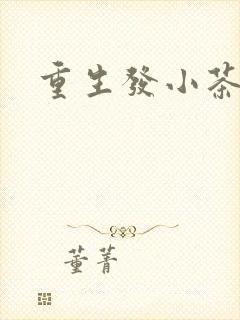 重生發小茶
董菁